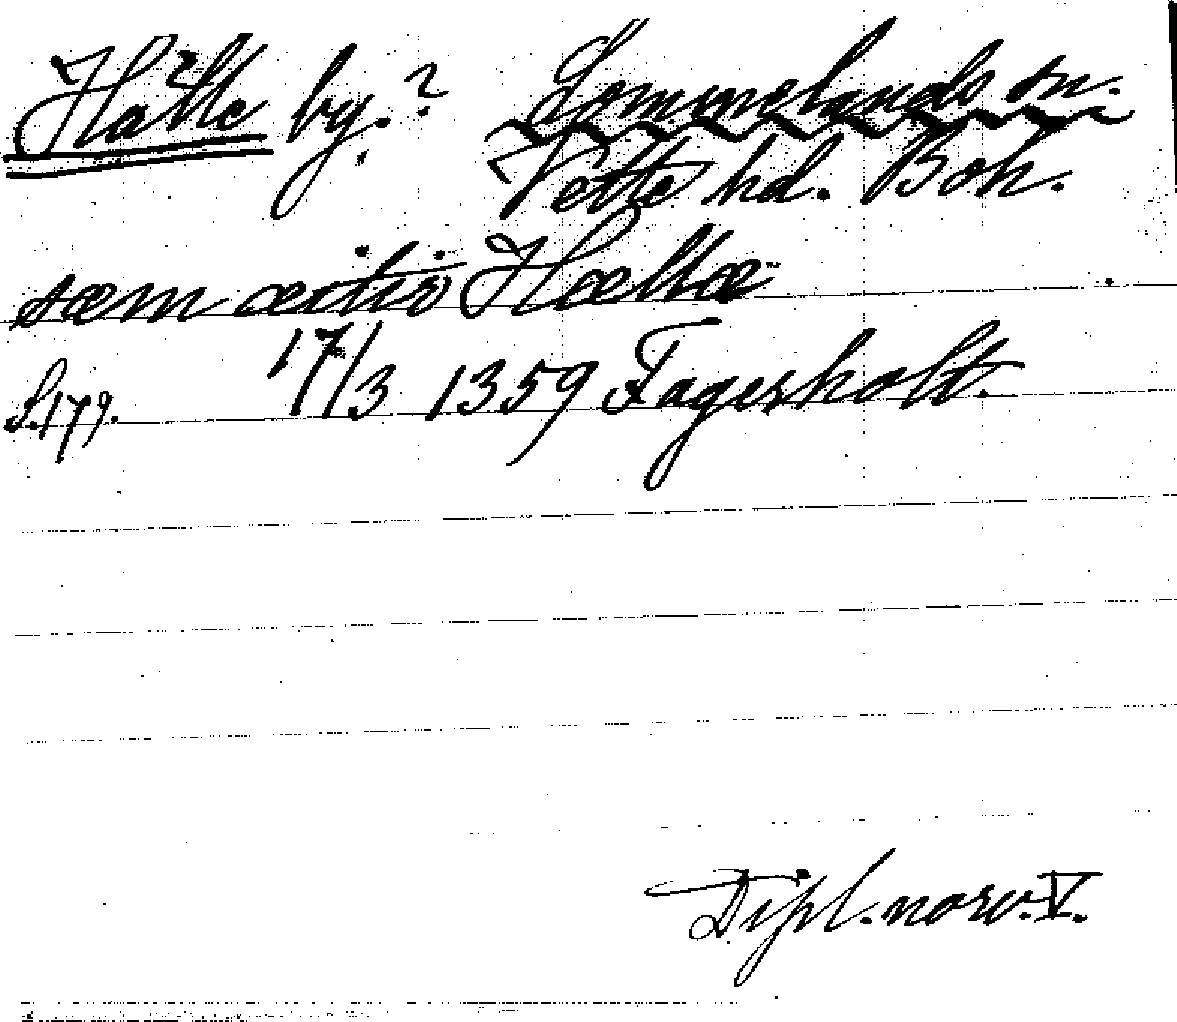 Hälle by.? Lommelands sn.
Vette hd. Boh.
sæm æitir Hælltæ
S. 179. 17/3 1359 Fagerholt.
Dipl. norv. V.